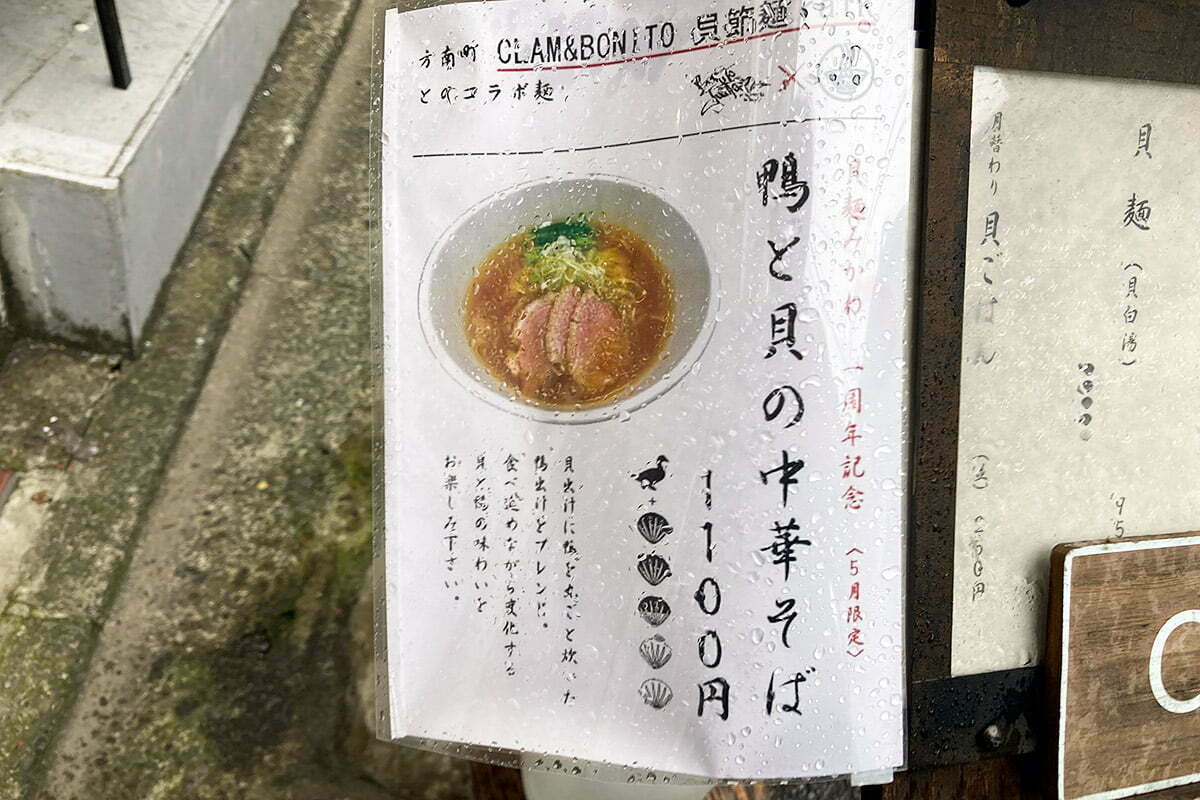 方南町 CLAM&BONITO 貝節麺
とのコラボ麺
×
貝麺みかわ 一周年記念 〈5月限定〉
鴨と貝の中華そば
1100円
+
貝出汁に鴨を丸ごと炊いた
鴨出汁をブレンド。
食べ進めながら変化する
貝と鴨の味わいを
お楽しみ下さい。
貝麺(貝白湯)
月替わり 貝ごはん